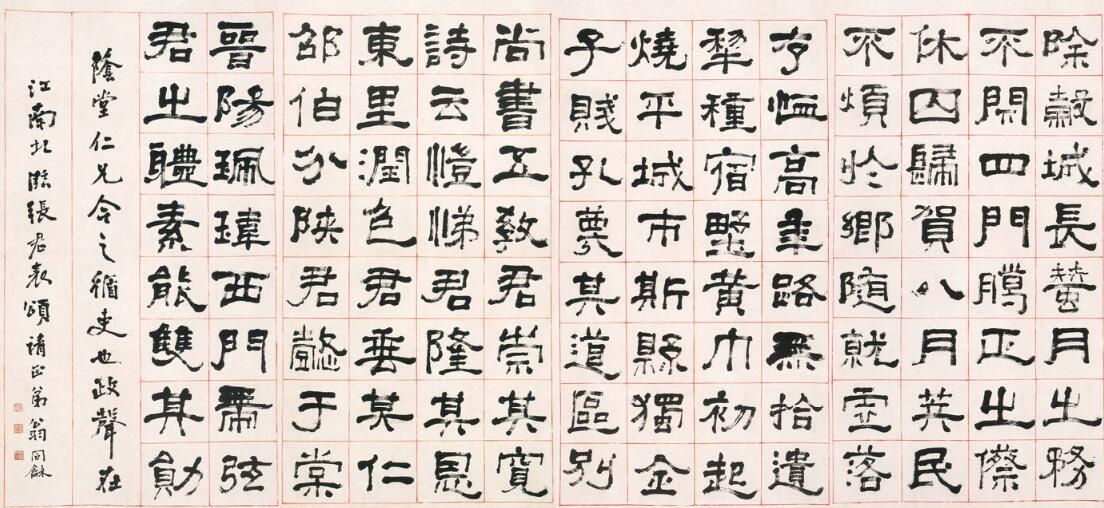 除穀城長蠶月之務
不閉四門臈正之傺
休囚歸賀八月筭民
不煩於鄉隨就虛落
存恤高年路無拾遺
犁種宿野黃巾初起
燒平城市斯縣獨全
子賤孔蔑其道區別
尚書五教君崇其寬
詩云愷悌君隆其恩
東里潤色君垂其仁
邵伯分陝君懿于棠
晉陽珮瑋西門帶弦
君之體素能雙其勛
蔭堂仁兄今之循吏也政聲在
江南北臨張君表頌請正弟翁同龢